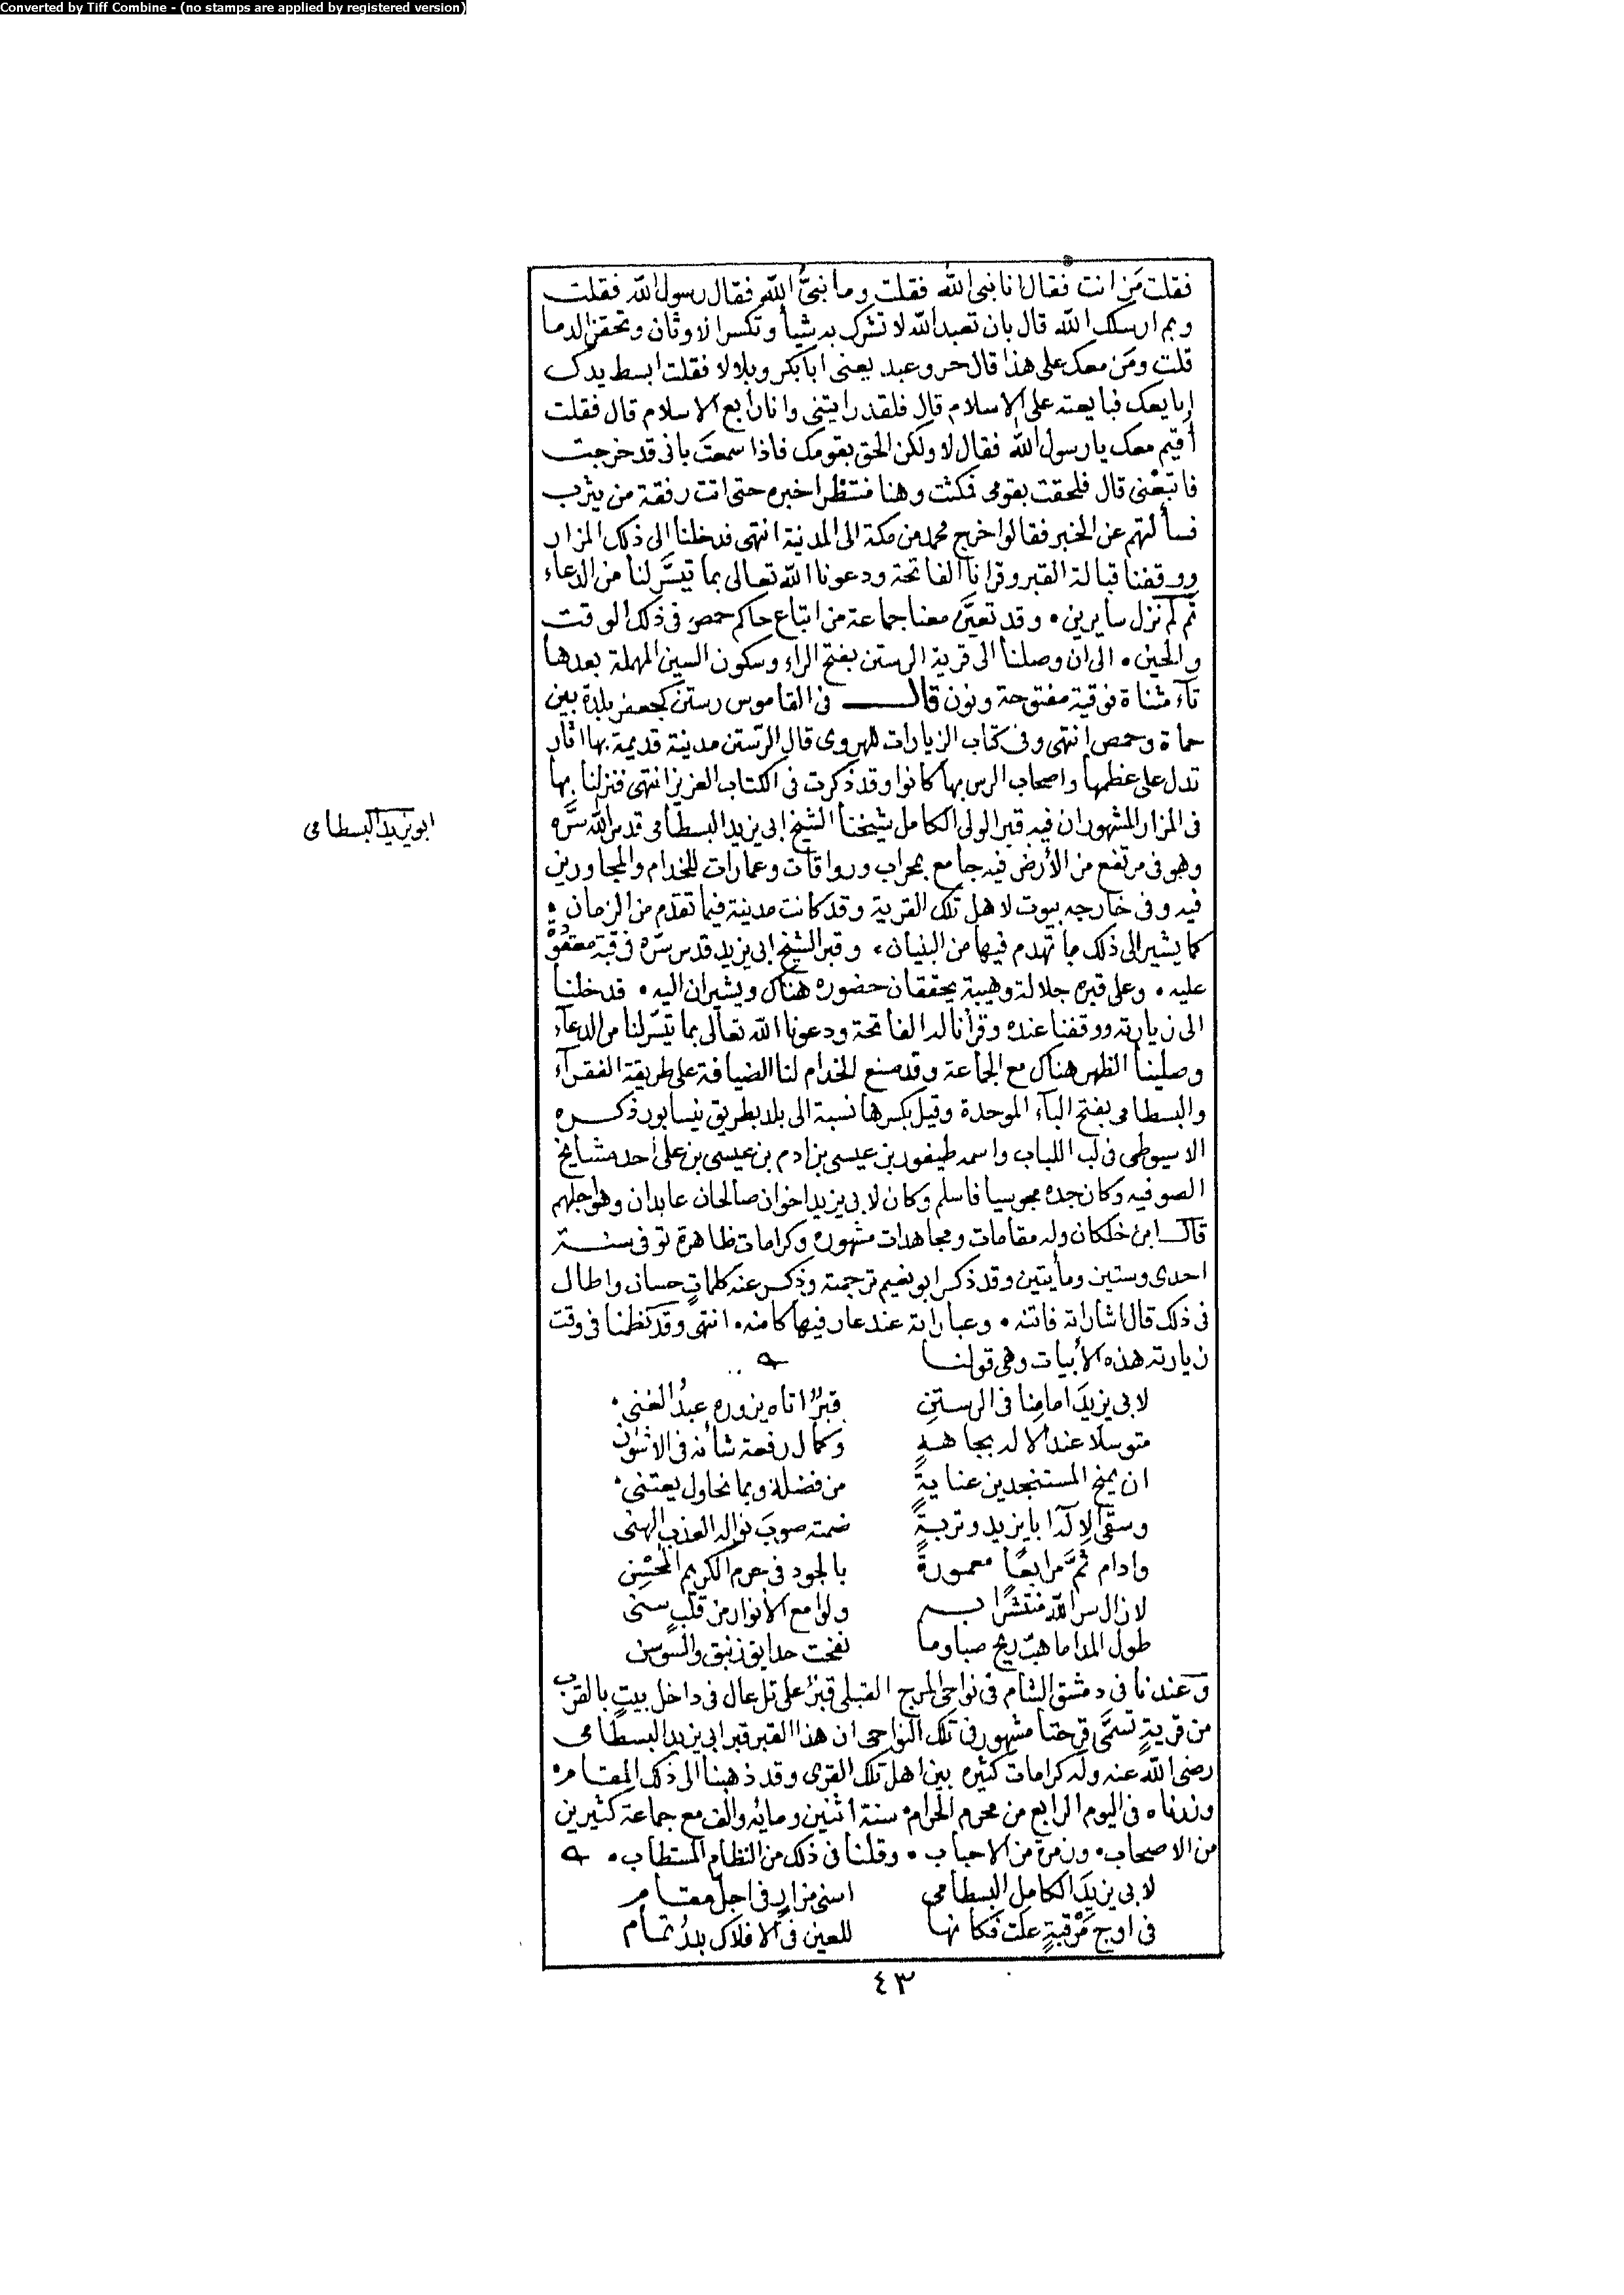 Converted by Tiff Combine - (no stamps are applied by registered version)
فقلت مَن انت فقال انا نبى الله فقلت وما نبىُّ الله فقال رسول الله فقلت
وبم ارسلك الله قال بان تعبد الله لا تشرك به شيأ وتكسر الاوثان وتحقن الدما
قلت ومَن معك على هذا قال حر وعبد يعنى ابابكر وبلالا فقلت ابسط يدك
ابايعك فبايعته على الاسلام قال فلقد رايتنى وانا رابع الاسلام قال فقلت
أقيم معك يا رسول الله فقال لا ولكن الحق بقومك فاذا سمعتَ بانى قد خرجت
فاتبعْنى قال فلحقت بقومى فمكثت وهنا منتظرا خبره حتى اتت رفقة من يثرب
فسألتهم عن الخبر فقالوا خرج محمد من مكة الى المدينة انتهى فدخلنا الى ذلك المزار
ووقفنا قبالة القبر وقرانا الفاتحة ودعونا الله تعالى بما تيسَّر لنا من الدعاء
ثم لم نزل سايرين • وقد تعيَّن معنا جماعة من اتباع حاكم حمص فى ذلك الوقت
والحين • الى ان وصلنا الى قرية الرستن بفتح الراء وسكون السين المهملة بعدها
تآء مثناة فوقية مفتوحة ونون قال فى القاموس رستن كجعفر بلدة بين
حماة وحمص انتهى وفى كتاب الزيارات للهروى قال الرّستن مدينة قديمة بها اثار
تدل على عظمها واصحاب الرس بها كانوا وقد ذكرت فى الكتاب العزيز انتهى فنزلنا بها
فى المزار المشهور ان فيه قبر الولى الكامل شيخنا الشيخ ابى يزيد البسطامى قدس الله سَّره
ابو يزيد البسطامى
وهو فى مرتفع من الأرض فيه جامع بمحراب ورواقات وعمارات للخدام والمجاورين
فيه وفى خارجه بيوت لاهل تلك القرية وقد كانت مدينة فيما تقدم من الزمان •
كما يشير الى ذلك ما تهدم فيها من البنيان • وقبر الشيخ ابى يزيد قدس سرّه فى قبة معقودة
عليه • وعلى قبره جلالة وهيبة يحققان حضوره هناك ويشيران اليه • فدخلنا
الى زيارته ووقفنا عنده وقرأنا له الفاتحة ودعونا الله تعالى بما تيسّر لنا من الدعآء
وصلينا الظهر هناك مع الجماعة وقد صنع الخدام لنا الضيافة على طريقة الفقرآء
والبسطامى بفتح البآء الموحدة وقيل بكسرها نسبة الى بلد بطريق نيسابور ذكره
الاسيوطى فى لب اللباب واسمه طيفور بن عيسى بن ادم بن عيسى بن على أحد مشايخ
الصوفيه وكان جده مجوسيا فاسلم وكان لابى يزيد اخوان صالحان عابدان وهو اجلهم
قال ابن خلكان وله مقامات ومجاهدات مشهوره وكرامات ظاهرة توفى سنة
احدى وستين ومأيتين وقد ذكر ابو نعيم ترجمته وذكر عنه كلماتٍ حسان واطال
فى ذلك قال اشاراته فاتنه • وعباراته عند عارفيها كامنه • انتهى وقد نظمنا فى وقت
زيارته هذه الأبيات وهى قولنا
لابى يزيدَ امامِنا فى الرستنِ قبرٌ اتاه يزوره عبدُ الغنى •
متوسلًا عند الاله بجاههِ وكمال رفعة شأنه فى الاثنون
ان يمنح المستنجدين عنايةً من فضله وبما نحاول يعتنى •
وسقى الاِلَهُ ابا يزيد وتربةً ضمته صوبَ نواله العذبِ الهنى
وادام ثَمَّ مرابعًا معمورةً بالجود فى حرم الكريم المُحْسِن
لا زال سر الله منتشرًا به ولوامع الأنوار من قلبٍ سنى
طول المدا ما هبّ ريح صبا وما نفحت حدايق زنبق والسوسن
وعندنا فى دمشق الشام فى نواحى المرج القبلى قبرٌ على تل عال فى داخل بيتٍ بالقرب
من قريةٍ تسمَّى قرحتا مشهور فى تلك النواحى ان هذا القبر قبر ابى يزيد البسطامى
رضى الله عنه وله كرامات كثيره بين اهل تلك القرى وقد ذهبنا الى ذلك المقام •
وزرناه فى اليوم الرابع من محرم الحرام سنة اثنين ومايه والف مع جماعة كثيرين
من الاصحاب • وزمرة من الاحباب • وقلنا فى ذلك من النظام المستطاب •
لابى يزيدَ الكامل البسطامى اسنى مزارٍ فى اجلّ مقام
فى اوج مَرْقبةٍ علت فكانها للعين فى الافلاك بدرُ تمام
٤٣